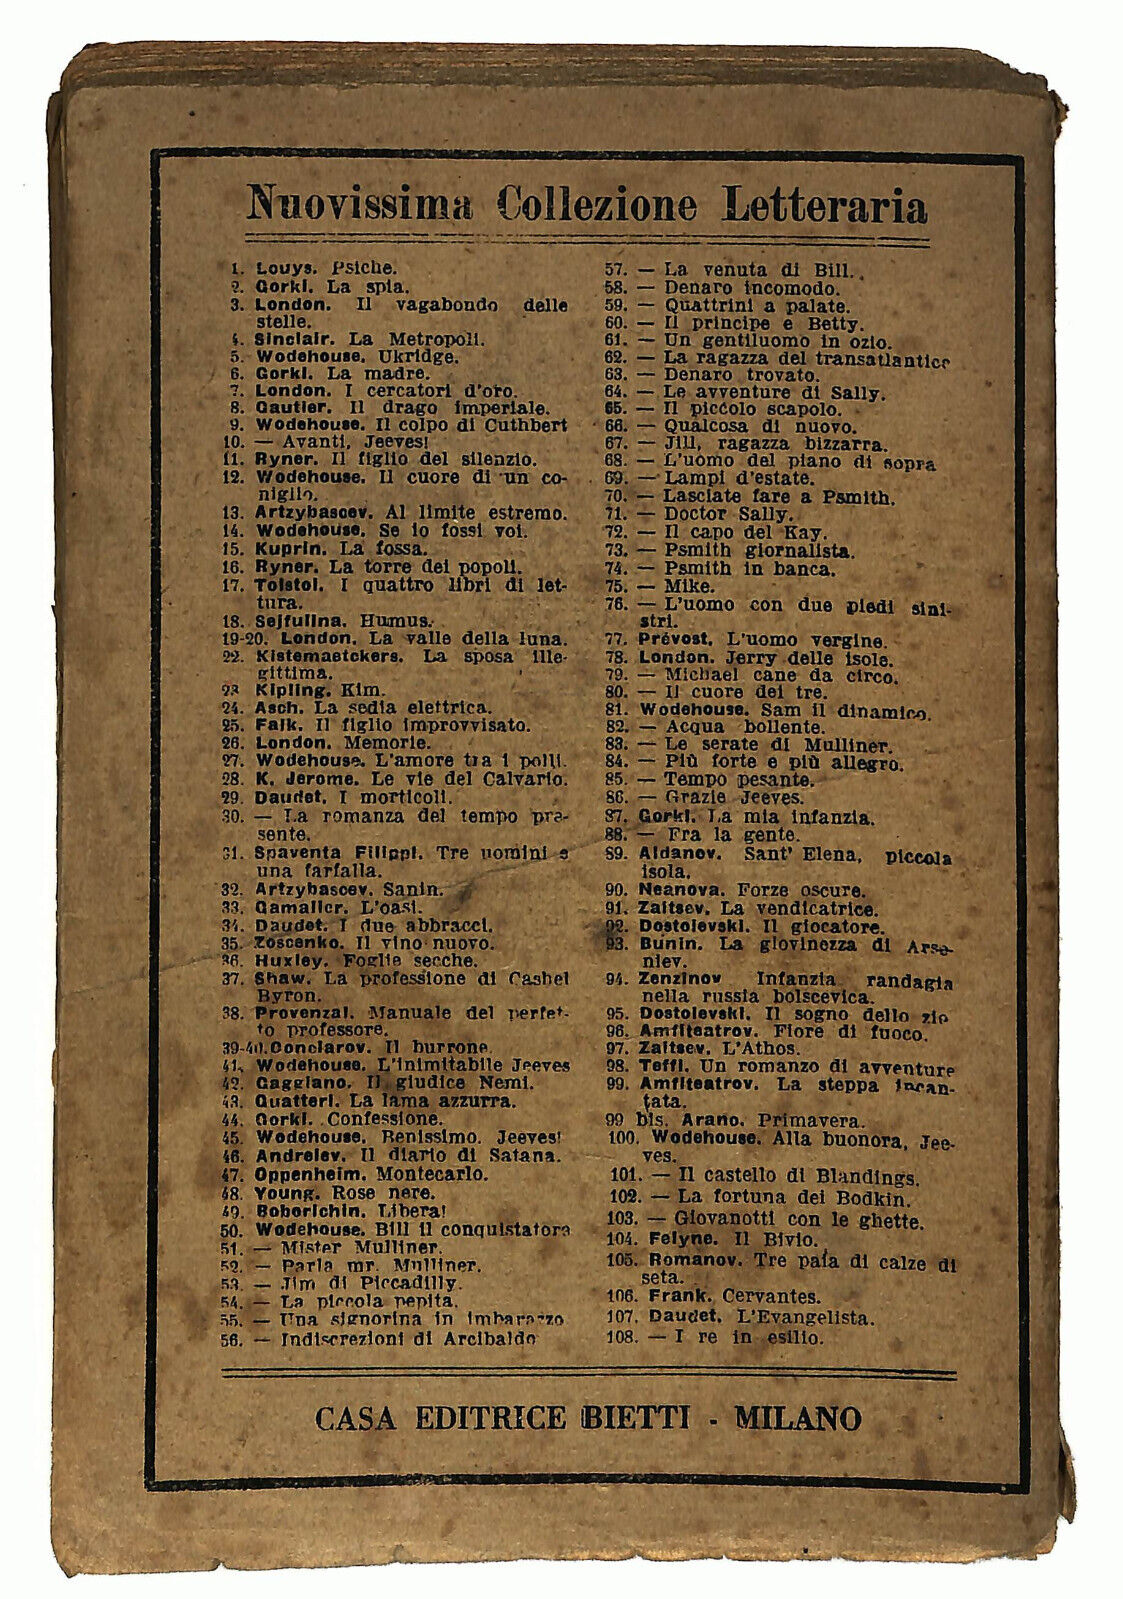 Nuovissima Collezione Letteraria
1. Louys. Psiche.
2. Gorki. La spia.
3. London. Il vagabondo delle
stelle.
4. Sinclair. La Metropoli.
5. Wodehouse. Ukridge.
6. Gorki. La madre.
7. London. I cercatori d'oro.
8. Gautier. Il drago imperiale.
9. Wodehouse. Il colpo di Cuthbert
10. — Avanti, Jeeves!
11. Ryner. Il figlio del silenzio.
12. Wodehouse. Il cuore di un co-
niglio.
13. Artzybascev. Al limite estremo.
14. Wodehouse. Se io fossi voi.
15. Kuprin. La fossa.
16. Ryner. La torre dei popoli.
17. Tolstoi. I quattro libri di let-
tura.
18. Sejfulina. Humus.
19-20. London. La valle della luna.
22. Kistemaetckers. La sposa ille-
gittima.
23 Kipling. Kim.
24. Asch. La sedia elettrica.
25. Falk. Il figlio improvvisato.
26. London. Memorie.
27. Wodehouse. L'amore tra i polli.
28. K. Jerome. Le vie del Calvario.
29. Daudet. I morticoli.
30. — La romanza del tempo pre-
sente.
31. Spaventa Filippi. Tre uomini e
una farfalla.
32. Artzybascev. Sanin.
33. Gamalier. L'oasi.
34. Daudet. I due abbracci.
35. Zoscenko. Il vino nuovo.
36. Huxley. Foglie secche.
37. Shaw. La professione di Cashel
Byron.
38. Provenzal. Manuale del perfet-
to professore.
39-40. Gonciarov. Il burrone.
41. Wodehouse. L'inimitabile Jeeves
42. Gaggiano. Il giudice Nemi.
43. Quatteri. La lama azzurra.
44. Gorki. Confessione.
45. Wodehouse. Benissimo. Jeeves!
46. Andreiev. Il diario di Satana.
47. Oppenheim. Montecarlo.
48. Young. Rose nere.
49. Boborichin. Libera!
50. Wodehouse. Bill il conquistatore
51. — Mister Mulliner.
52. — Parla mr. Mulliner.
53. — Jim di Piccadilly.
54. — La piccola pepita.
55. — Una signorina in imbarazzo
56. — Indiscrezioni di Arcibaldo
57. — La venuta di Bill.
58. — Denaro incomodo.
59. — Quattrini a palate.
60. — Il principe e Betty.
61. — Un gentiluomo in ozio.
62. — La ragazza del transatlantico
63. — Denaro trovato.
64. — Le avventure di Sally.
65. — Il piccolo scapolo.
66. — Qualcosa di nuovo.
67. — Jill, ragazza bizzarra.
68. — L'uomo del piano di sopra
69. — Lampi d'estate.
70. — Lasciate fare a Psmith.
71. — Doctor Sally.
72. — Il capo dei Kay.
73. — Psmith giornalista.
74. — Psmith in banca.
75. — Mike.
76. — L'uomo con due piedi sini-
stri.
77. Prévost. L'uomo vergine.
78. London. Jerry delle isole.
79. — Michael cane da circo.
80. — Il cuore dei tre.
81. Wodehouse. Sam il dinamico.
82. — Acqua bollente.
83. — Le serate di Mulliner.
84. — Più forte e più allegro.
85. — Tempo pesante.
86. — Grazie Jeeves.
87. Gorki. La mia infanzia.
88. — Fra la gente.
89. Aldanov. Sant' Elena, piccola
isola.
90. Neanova. Forze oscure.
91. Zaitsev. La vendicatrice.
92. Dostoievski. Il giocatore.
93. Bunin. La giovinezza di Arse-
niev.
94. Zenzinov Infanzia randagia
nella russia bolscevica.
95. Dostoievski. Il sogno dello zio
96. Amfiteatrov. Fiore di fuoco.
97. Zaitsev. L'Athos.
98. Teffi. Un romanzo di avventure
99. Amfiteatrov. La steppa incan-
tata.
99 bis. Arano. Primavera.
100. Wodehouse. Alla buonora, Jee-
ves.
101. — Il castello di Blandings.
102. — La fortuna dei Bodkin.
103. — Giovanotti con le ghette.
104. Felyne. Il Bivio.
105. Romanov. Tre paia di calze di
seta.
106. Frank. Cervantes.
107. Daudet. L'Evangelista.
108. — I re in esilio.
CASA EDITRICE BIETTI - MILANO